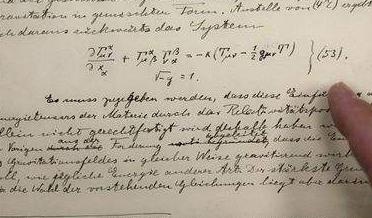 Gravitation in gemischter Form. Anstelle von (47) ergibt
sich daraus rückwärts das System
∂Γ^α_μν/∂x_α + Γ^α_μβ Γ^β_να = -κ(T_μν - 1/2 g_μν T) } (53).
√-g = 1.
Es muss zugegeben werden, dass diese Einführung
Energietensors der Materie durch das Relativitätspostulat
allein nicht gerechtfertigt wird; deshalb haben wir
im Vorigen aus der Forderung abgeleitet, dass die
Gravitationsfeldes in gleicher Weise gravitierend wirken
soll, wie jegliche Energie anderer Art. Der stärkste Grund
die Wahl der vorstehenden Gleichungen liegt aber darin